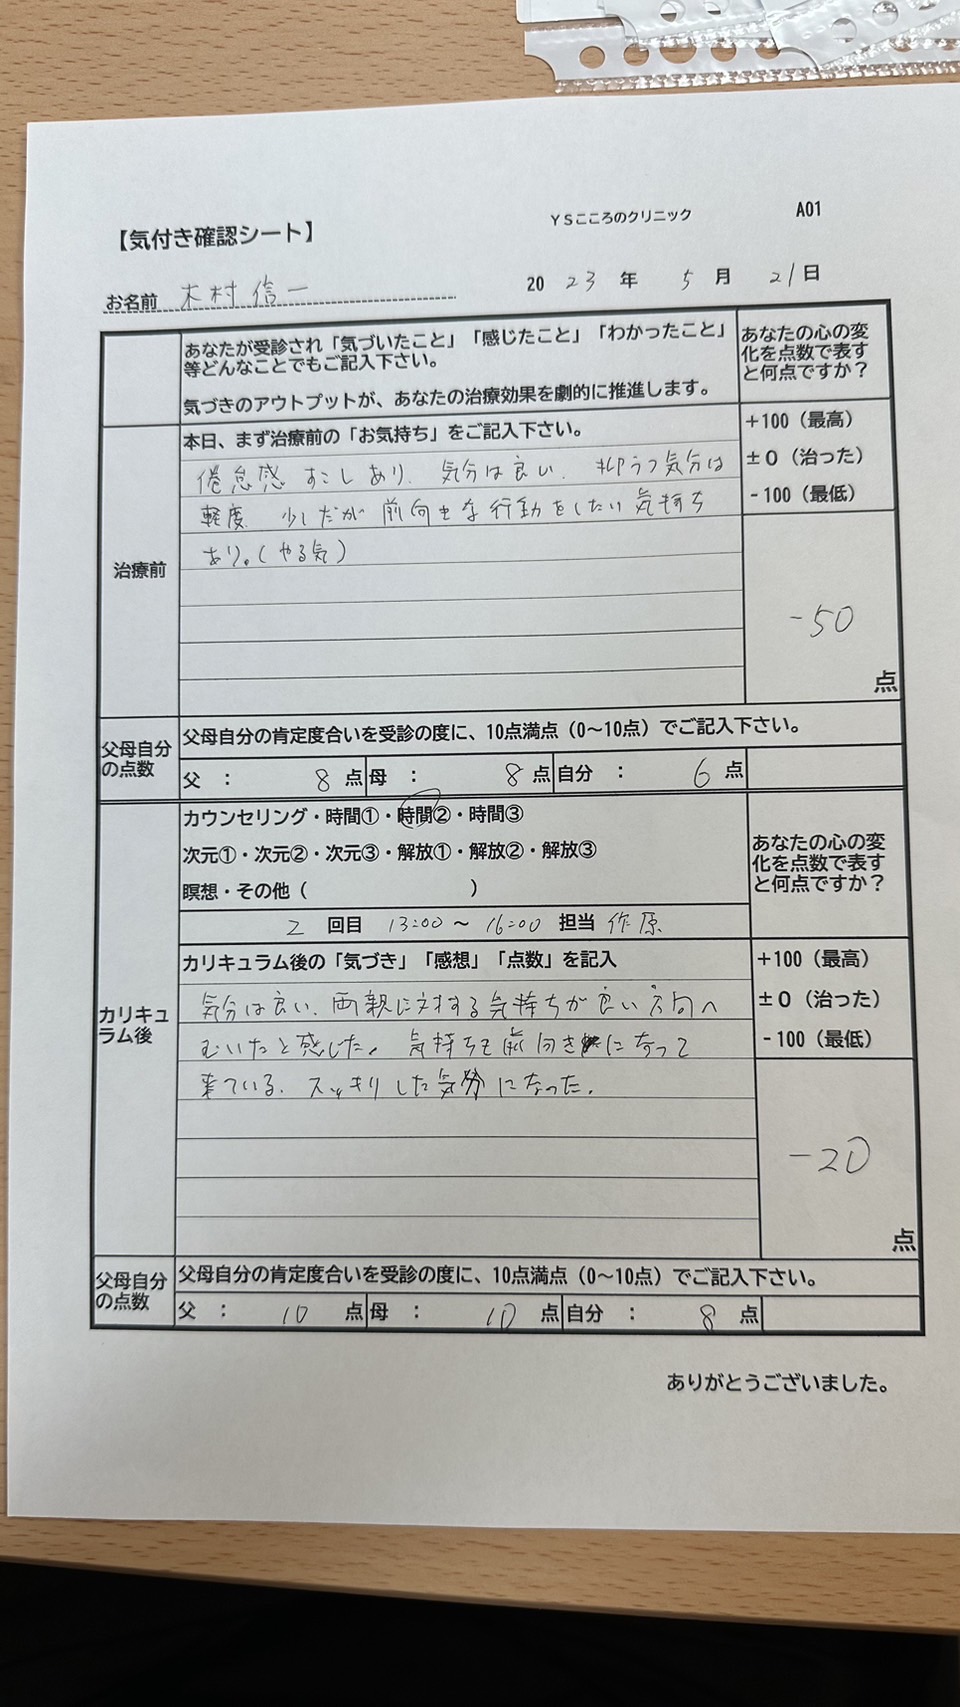 YSこころのクリニック A01
【気付き確認シート】
お名前 木村信一 2023年5月21日
あなたが受診され「気づいたこと」「感じたこと」「わかったこと」
等どんなことでもご記入下さい。
気づきのアウトプットが、あなたの治療効果を劇的に推進します。
あなたの心の変
化を点数で表す
と何点ですか？
治療前
本日、まず治療前の「お気持ち」をご記入下さい。
倦怠感 すこしあり、気分は良い、抑うつ気分は
軽度、少しだが前向きな行動をしたい気持ち
あり。(やる気)
+100（最高）
±0（治った）
-100（最低）
-50
点
父母自分
の点数
父母自分の肯定度合いを受診の度に、10点満点（0〜10点）でご記入下さい。
父 ： 8 点 母 ： 8 点 自分 ： 6 点
カリキュ
ラム後
カウンセリング・時間①・時間②・時間③
次元①・次元②・次元③・解放①・解放②・解放③
瞑想・その他（ ）
2 回目 13:00 〜 16:00 担当 作原
あなたの心の変
化を点数で表す
と何点ですか？
カリキュラム後の「気づき」「感想」「点数」を記入
気分は良い、両親に対する気持ちが良い方向へ
むいたと感じた。気持ちも前向きになって
来ている、スッキリした気分になった。
+100（最高）
±0（治った）
-100（最低）
-20
点
父母自分
の点数
父母自分の肯定度合いを受診の度に、10点満点（0〜10点）でご記入下さい。
父 ： 10 点 母 ： 10 点 自分 ： 8 点
ありがとうございました。